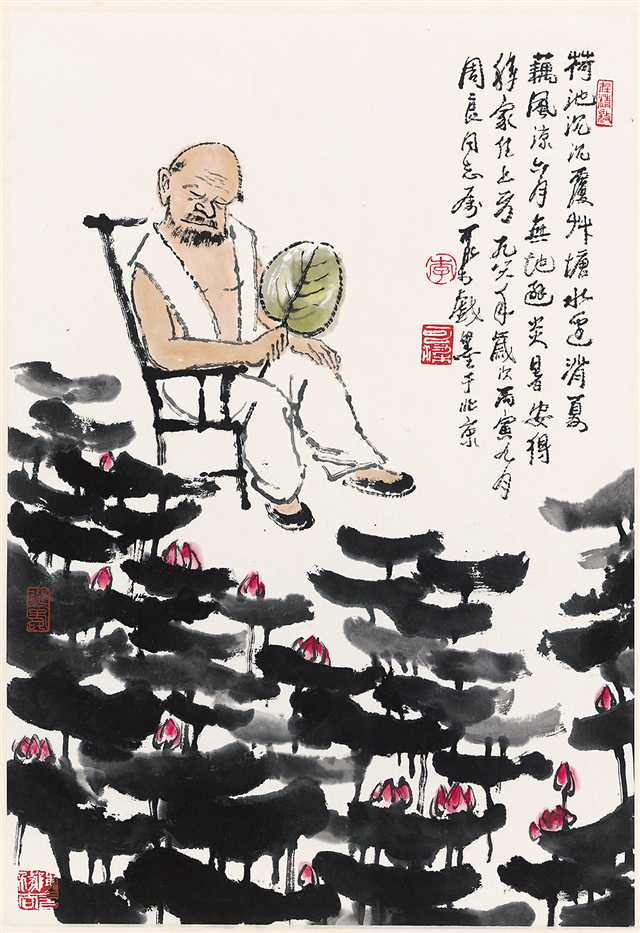 荷池沉沉覆塘水邊消夏
藕風涼六月無地避炎暑安得
移家住上方 一九八六年歲次丙寅九月
周良同志屬 可染戲墨于北京
李
可染